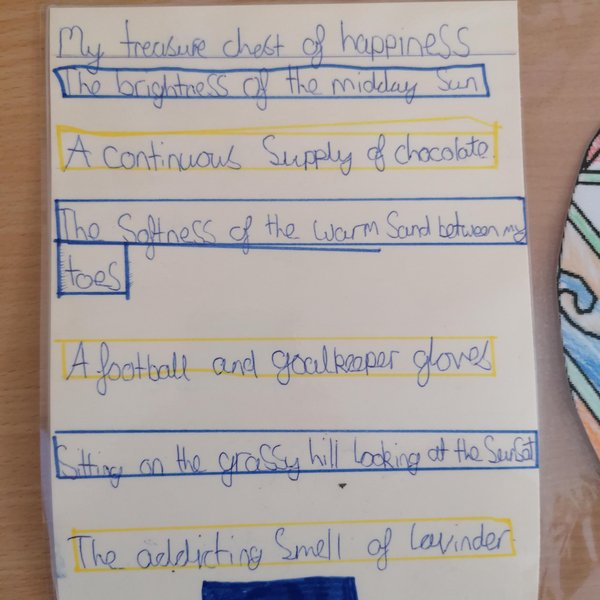 My treasure chest of happiness
The brightness of the midday Sun
A continuous Supply of chocolate.
The Softness of the warm Sand between my
toes
A football and goalkeeper gloves
Sitting on the grassy hill Looking at the SunSat
The addicting Smell of lavinder.